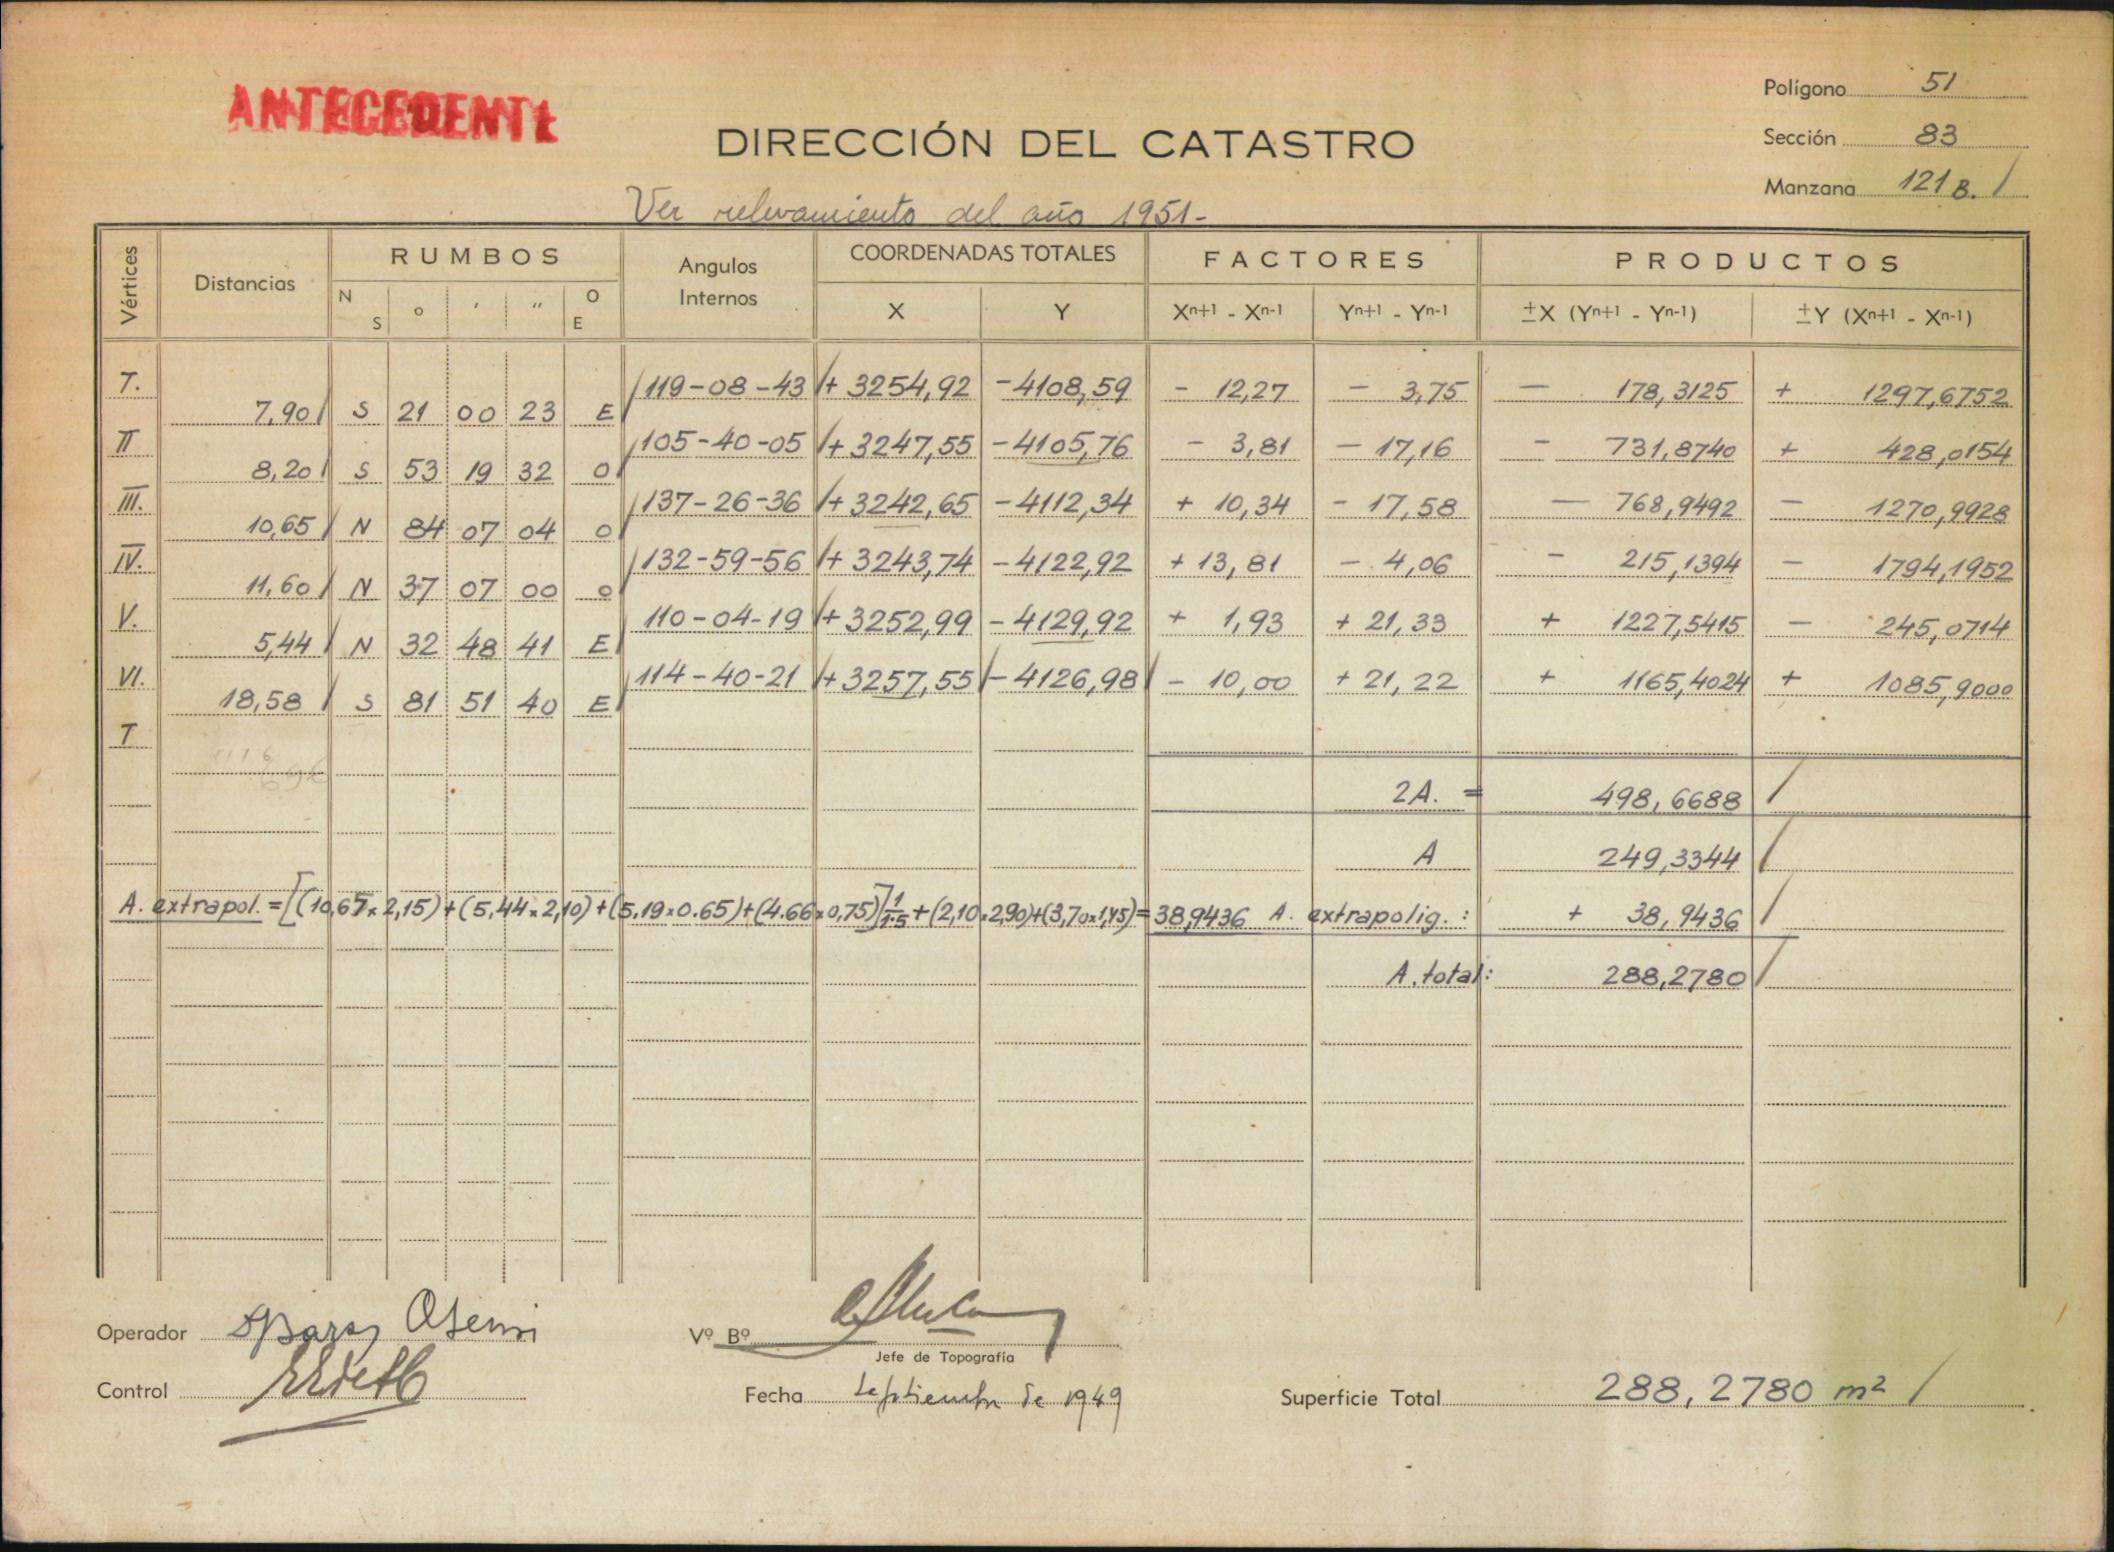 ANTECEDENTE
DIRECCIÓN DEL CATASTRO
Polígono 51
Sección 83
Manzana 121 B. /
Ver relevamiento del año 1951-
Vértices
Distancias
RUMBOS
N S ° ' '' O E
Angulos Internos
COORDENADAS TOTALES
X Y
FACTORES
Xn+1 - Xn-1 Yn+1 - Yn-1
PRODUCTOS
±X (Yn+1 - Yn-1) ±Y (Xn+1 - Xn-1)
I. 119-08-43 + 3254,92 -4108,59 - 12,27 - 3,75 - 178,3125 + 1297,6752
7,90 S 21 00 23 E
II 105-40-05 + 3247,55 -4105,76 - 3,81 - 17,16 - 731,8740 + 428,0154
8,20 S 53 19 32 O
III. 137-26-36 + 3242,65 -4112,34 + 10,34 - 17,58 - 768,9492 - 1270,9928
10,65 N 84 07 04 O
IV. 132-59-56 + 3243,74 -4122,92 + 13,81 - 4,06 - 215,1394 - 1794,1952
11,60 N 37 07 00 O
V. 110-04-19 + 3252,99 -4129,92 + 1,93 + 21,33 + 1227,5415 - 245,0714
5,44 N 32 48 41 E
VI. 114-40-21 + 3257,55 -4126,98 - 10,00 + 21,22 + 1165,4024 + 1085,9000
18,58 S 81 51 40 E
I
2A. = 498,6688 /
A 249,3344 /
A. extrapol. = [(10,67x2,15)+(5,44x2,10)+(5,19x0.65)+(4.66x0,75)] 1/1.5 +(2,10x2,90)+(3,70x1,45)=38,9436 A. extrapolig.: + 38,9436 /
A. total: 288,2780 /
Operador
Vº Bº
Jefe de Topografía
Control
Fecha Septiembre de 1949
Superficie Total 288,2780 m2 /